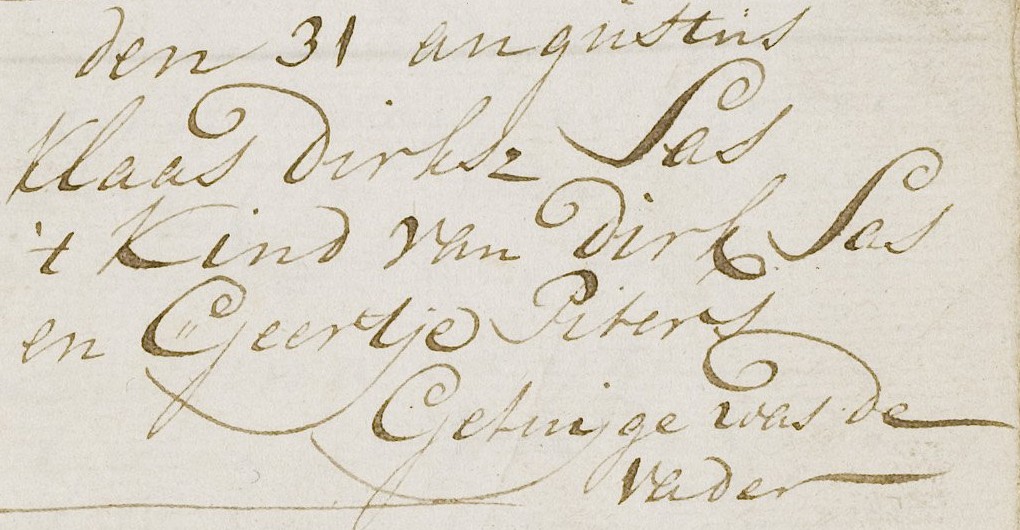 den 31 augustus
Klaas Dirksz Sas
't Kind van Dirk Sas
en Geertje Piters
Getuijge was de
vader